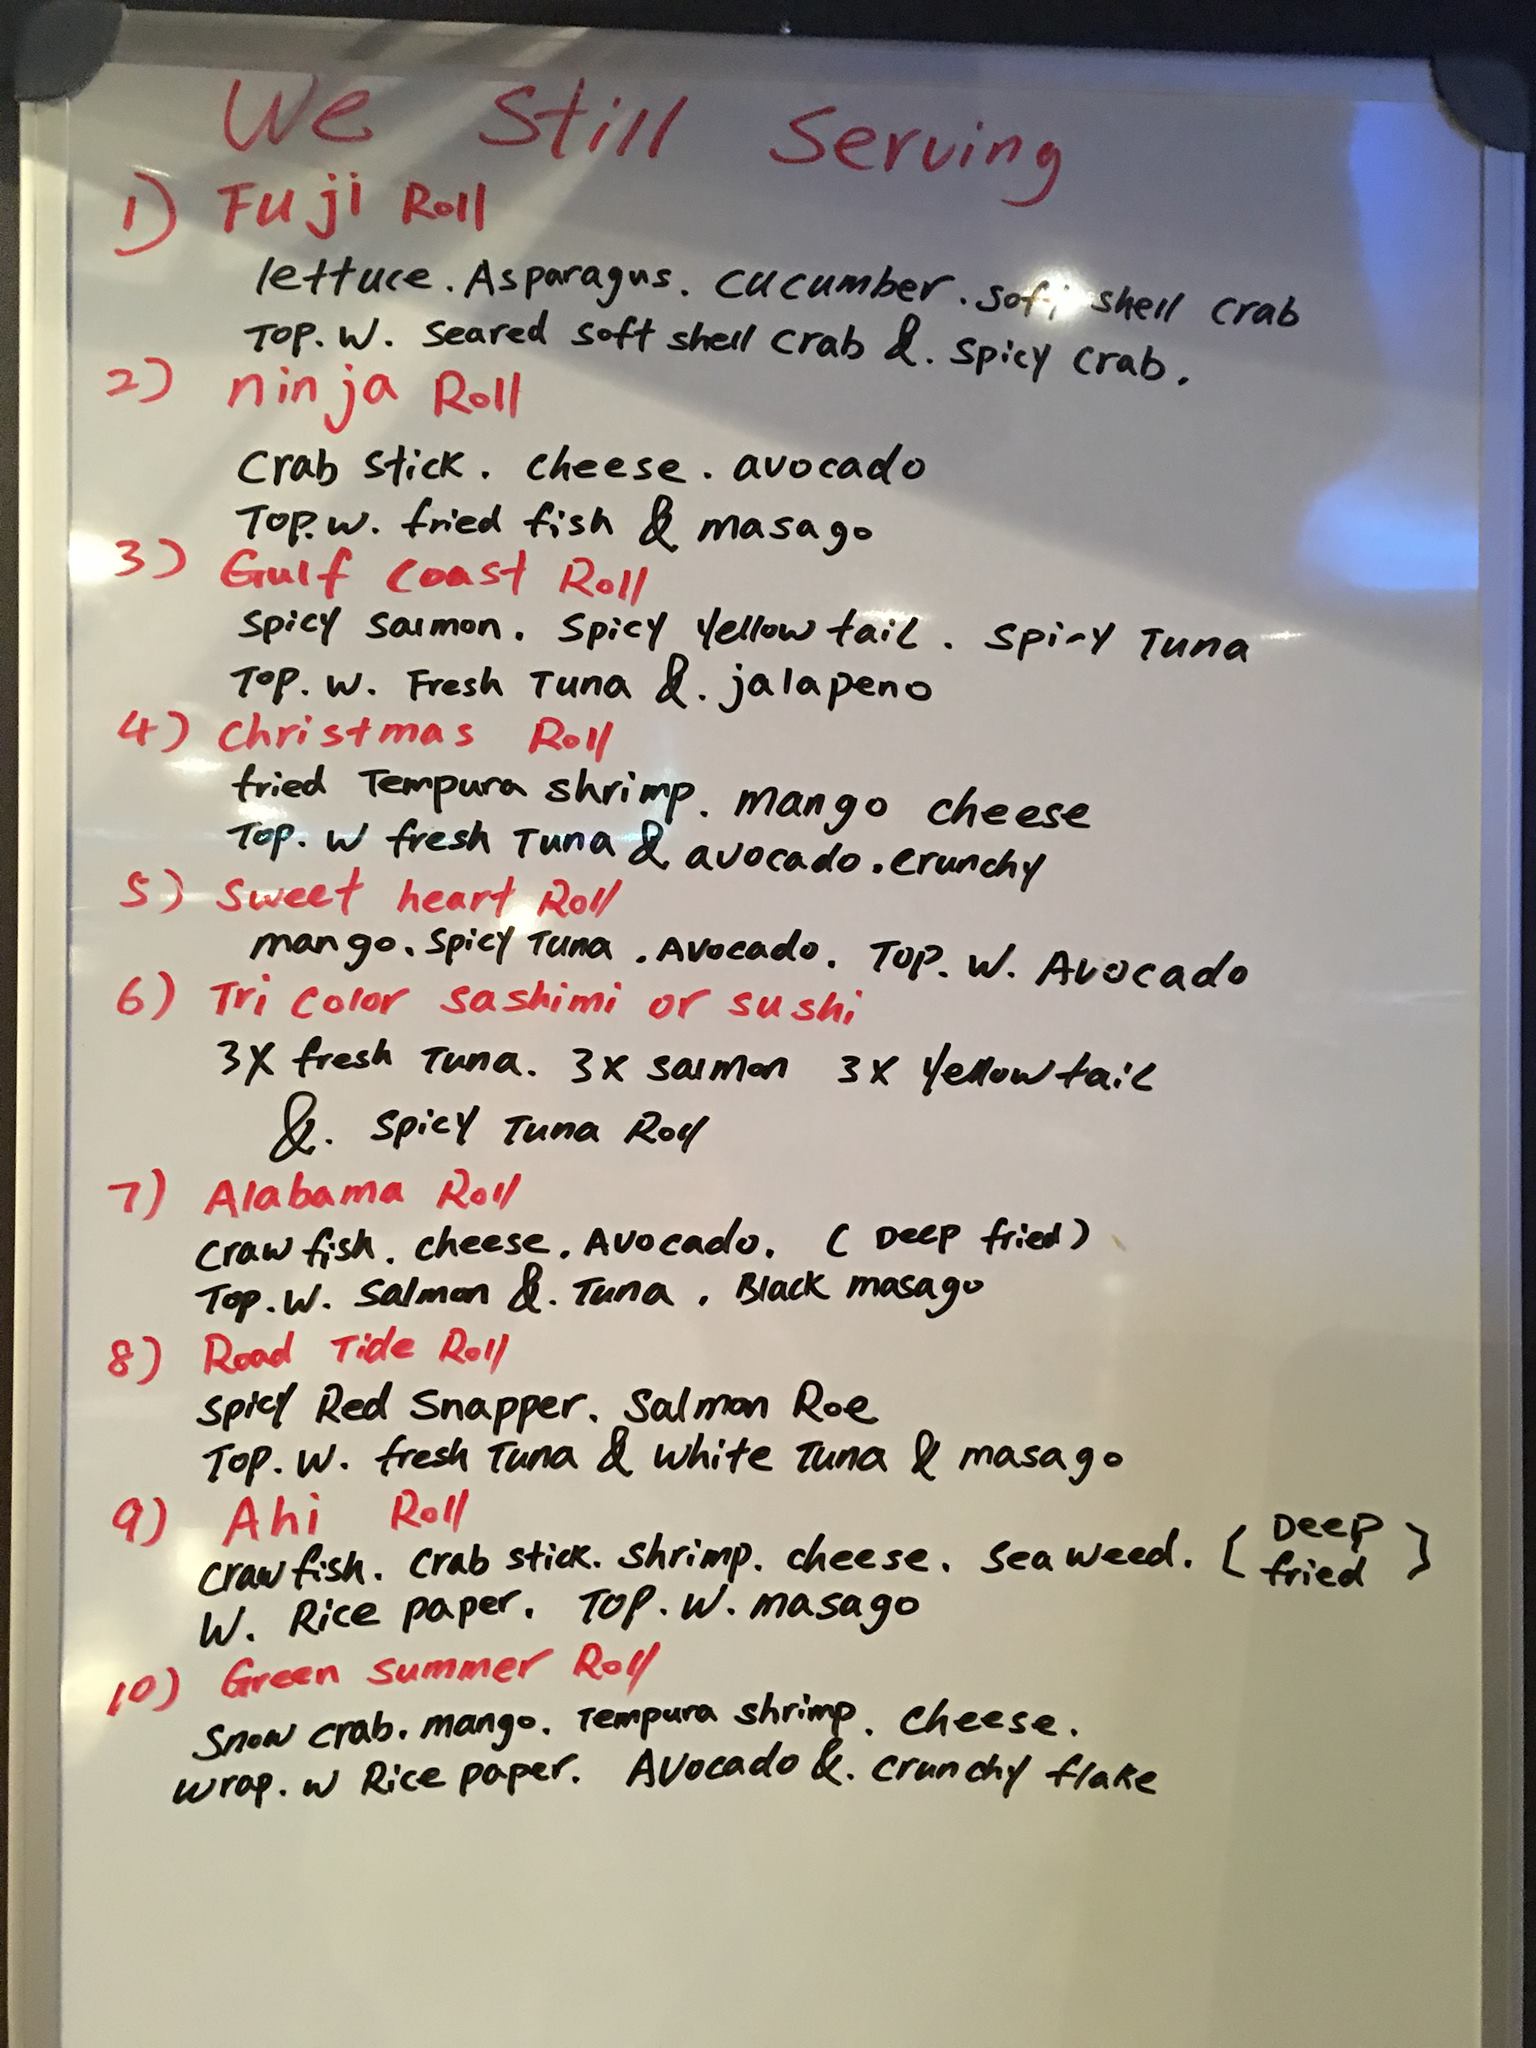 We Still Serving
1) Fuji Roll
lettuce. Asparagus. cucumber. soft shell crab
Top. W. seared soft shell crab &. spicy crab.
2) ninja Roll
Crab stick. cheese. avocado
Top. w. fried fish & masago
3) Gulf coast Roll
spicy salmon. spicy yellow tail. spicy Tuna
Top. W. Fresh Tuna &. jalapeno
4) christmas Roll
fried Tempura shrimp. mango cheese
Top. W fresh Tuna & avocado. crunchy
5) sweet heart Roll
mango. spicy Tuna. Avocado. Top. W. Avocado
6) Tri color sashimi or sushi
3X fresh Tuna. 3X salmon 3X Yellow tail
&. spicy Tuna Roll
7) Alabama Roll
Craw fish. cheese. Avocado. (Deep fried)
Top. W. Salmon &. Tuna. Black masago
8) Road Tide Roll
spicy Red Snapper. Salmon Roe
Top. W. fresh Tuna & white Tuna & masago
9) Ahi Roll
craw fish. crab stick. shrimp. cheese. sea weed. (Deep fried)
W. Rice paper. Top. W. masago
10) Green summer Roll
Snow crab. mango. Tempura shrimp. cheese.
wrap. w Rice paper. Avocado &. crunchy flake